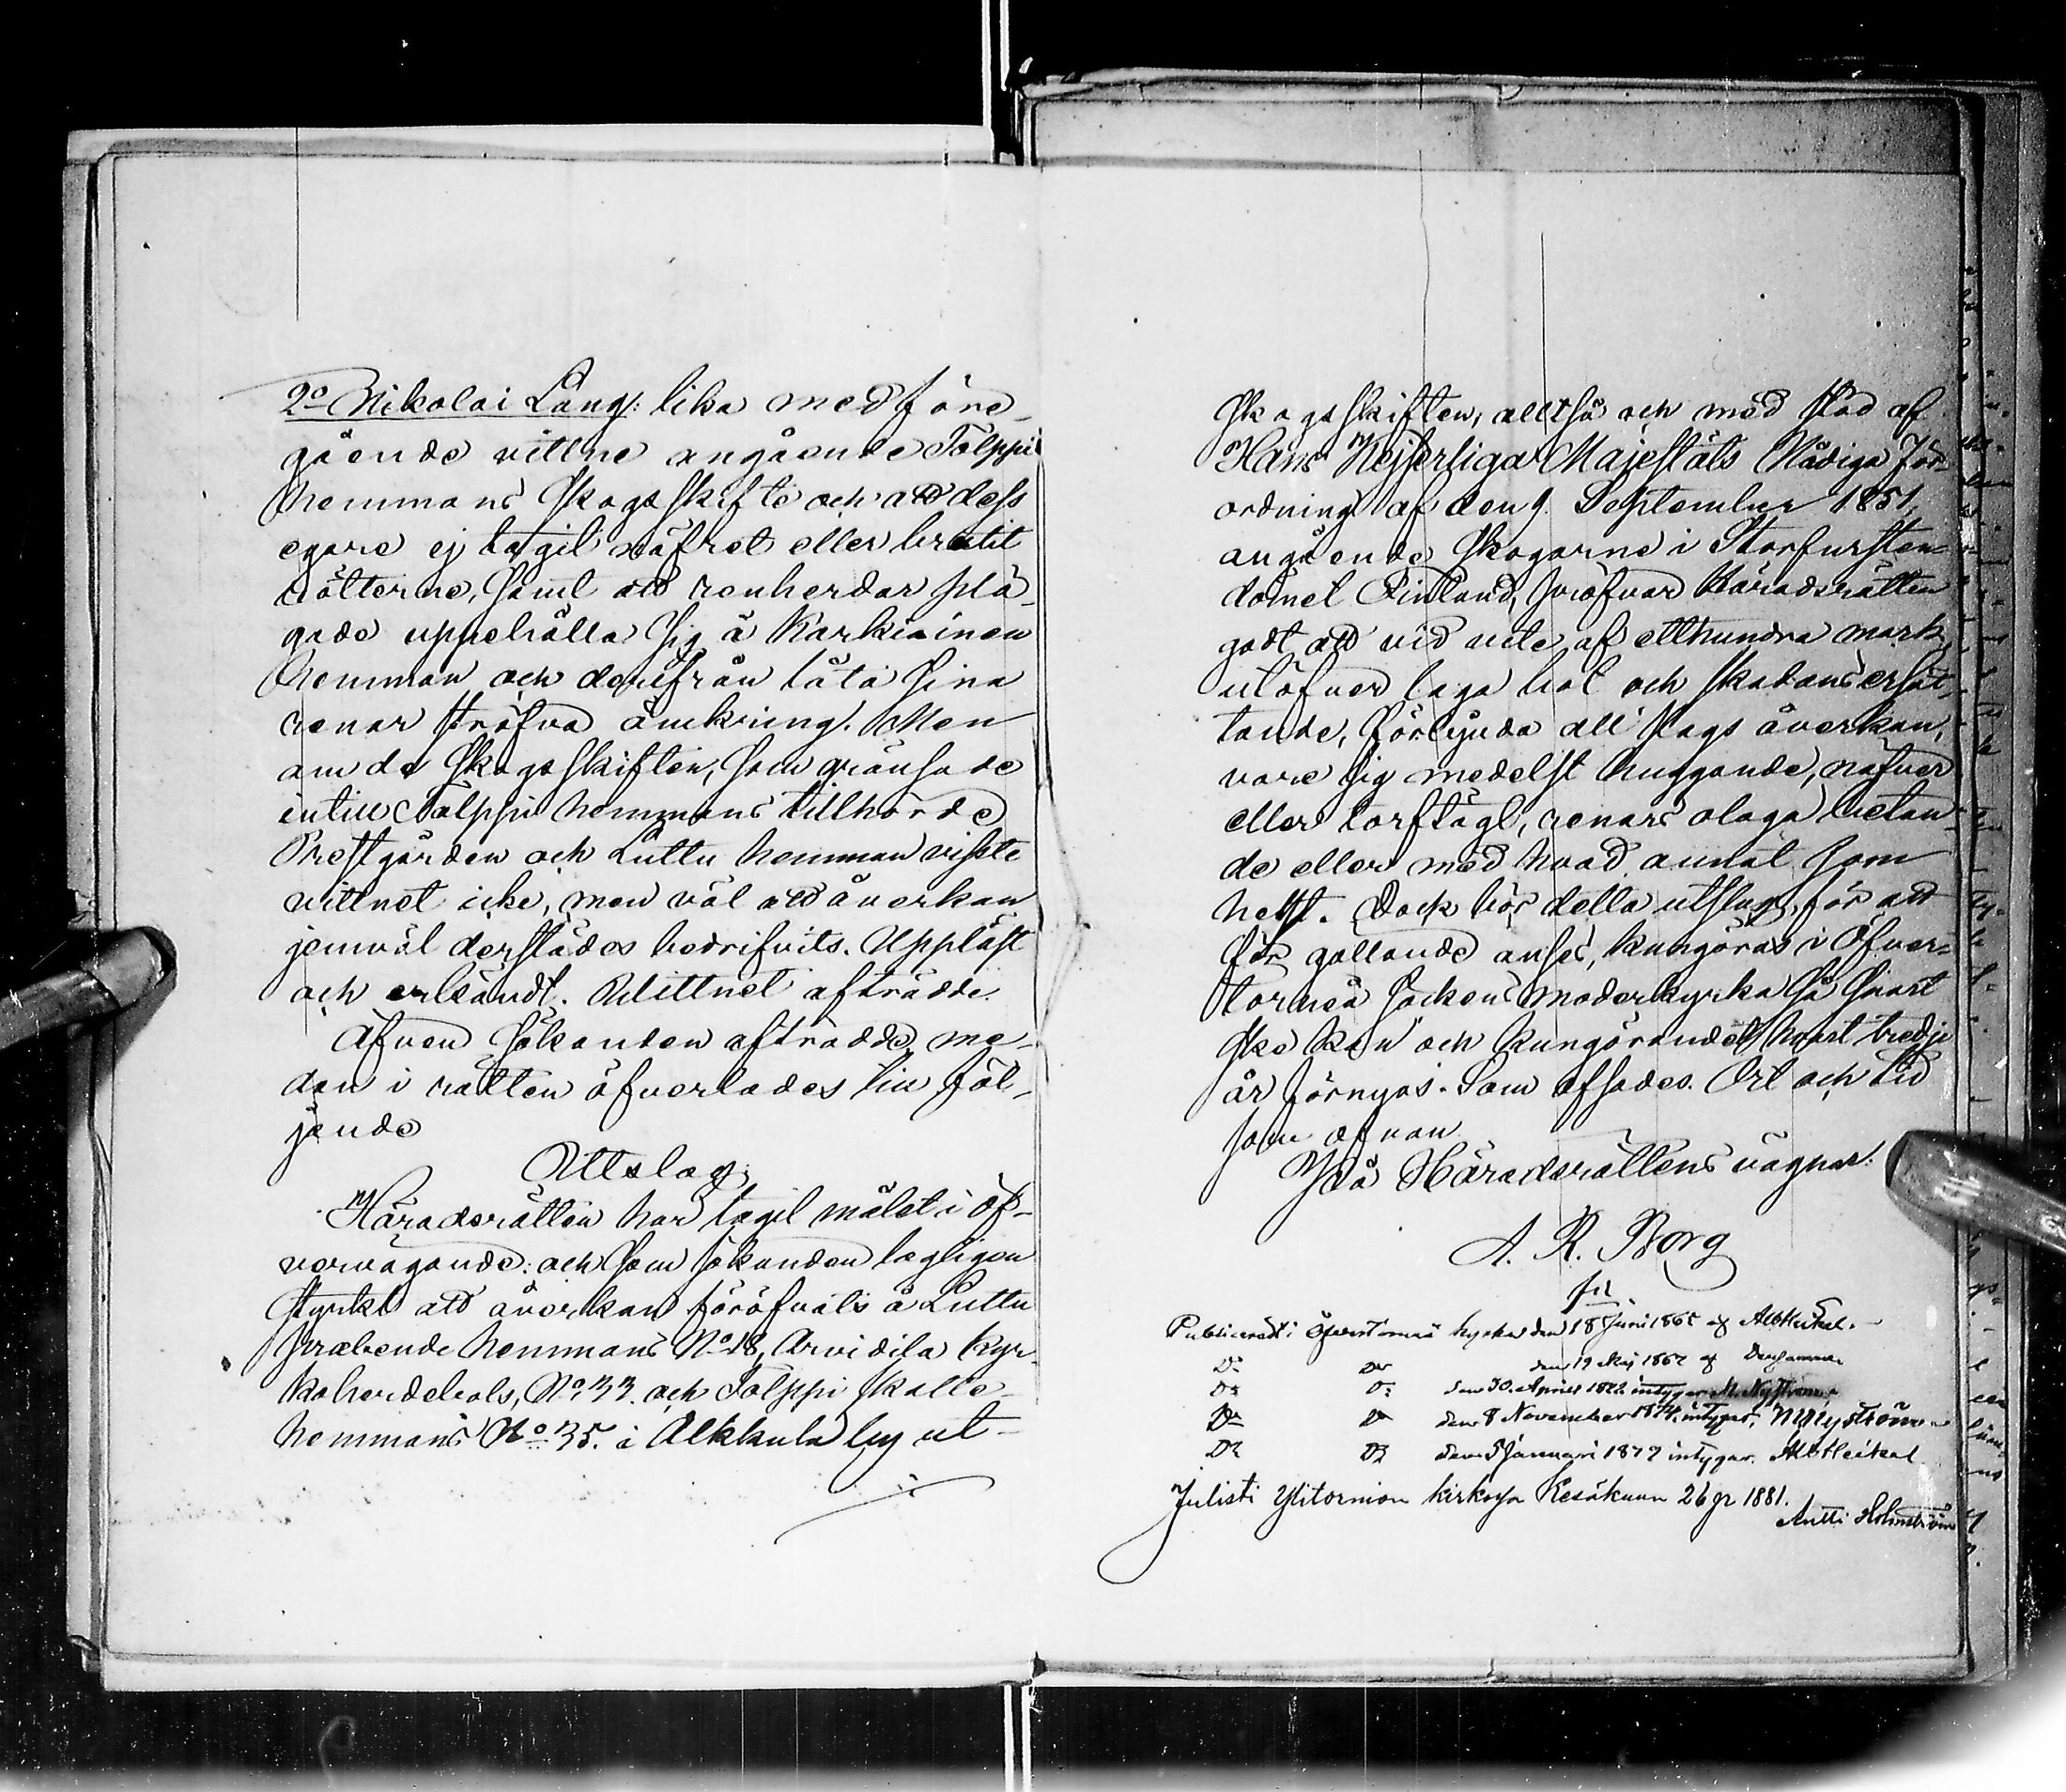 2o Nikolai Lång: lika med före-
gående vittne angående Tolppi
hemmans skogsskifte och att dess
egare ej tagit näfret eller brutit
rötterne, samt att renherdar plä-
gade uppehålla sig å Karkiainen
hemman och derifrån låta sina
renar ströfva omkring. Men
om de skogsskiften, som gränsade
intill Tolppi hemmans tillhörde
Prestgården och Luttu hemman visste
vittnet icke, men väl att åverkan
jemväl derstädes bedrifvits. Uppläst
och erkändt. Wittnet afträdde.
Äfven sökanden afträdde, me-
dan i rätten öfverlades till föl-
jande
Utslag;
Häradsrätten har tagit målet i öf-
vervägande: och som sökanden lagligen
styrkt att åverkan föröfvats å Luttu
præbende hemmans No 18, Arvidila Kyr-
koherdebols, No 33. och Tolppi skatte-
hemmans No 35. i Alkkula by ut-
skogsskiften; alltså och med stöd af
Hans Kejserliga Majestäts Nådiga För-
ordning af den 9 September 1851,
angående skogarne i Storfursten-
dömet Finland, pröfvar Häradsrätten
godt att vid vite af etthundra mark
utöfver laga bot och skadans ersät-
tande, förbjuda all slags åverkan,
vare sig medelst huggande, näfver
eller torftägt, renars olaga betan-
de eller med hvad annat som
helst. Dock bör detta utslag, för att
för gällande anses, kungöras i Öfver-
torneå sockens moderkyrka så snart
ske kan och kungörandet hvart tredje
år förnyas. Som afsades. Ort och tid
som ofvan
På Häradsrättens vägnar:
A. R. Borg
Publiceradt i Öfvertorneå kyrka den 18 Juni 1865 af Alb Heikel.
Do Do den 19 Maj 1867 af Densamme
Do Do den 30. April 1872 intygar M. Nyström
Do Do den 8 November 1874, intygar, M Nyström
Do Do den 5 Januari 1879 intygar. Alb Heikel
Julisti Ylitornion kirkossa Kesäkuun 26 p. 1881.
Antti Holmström